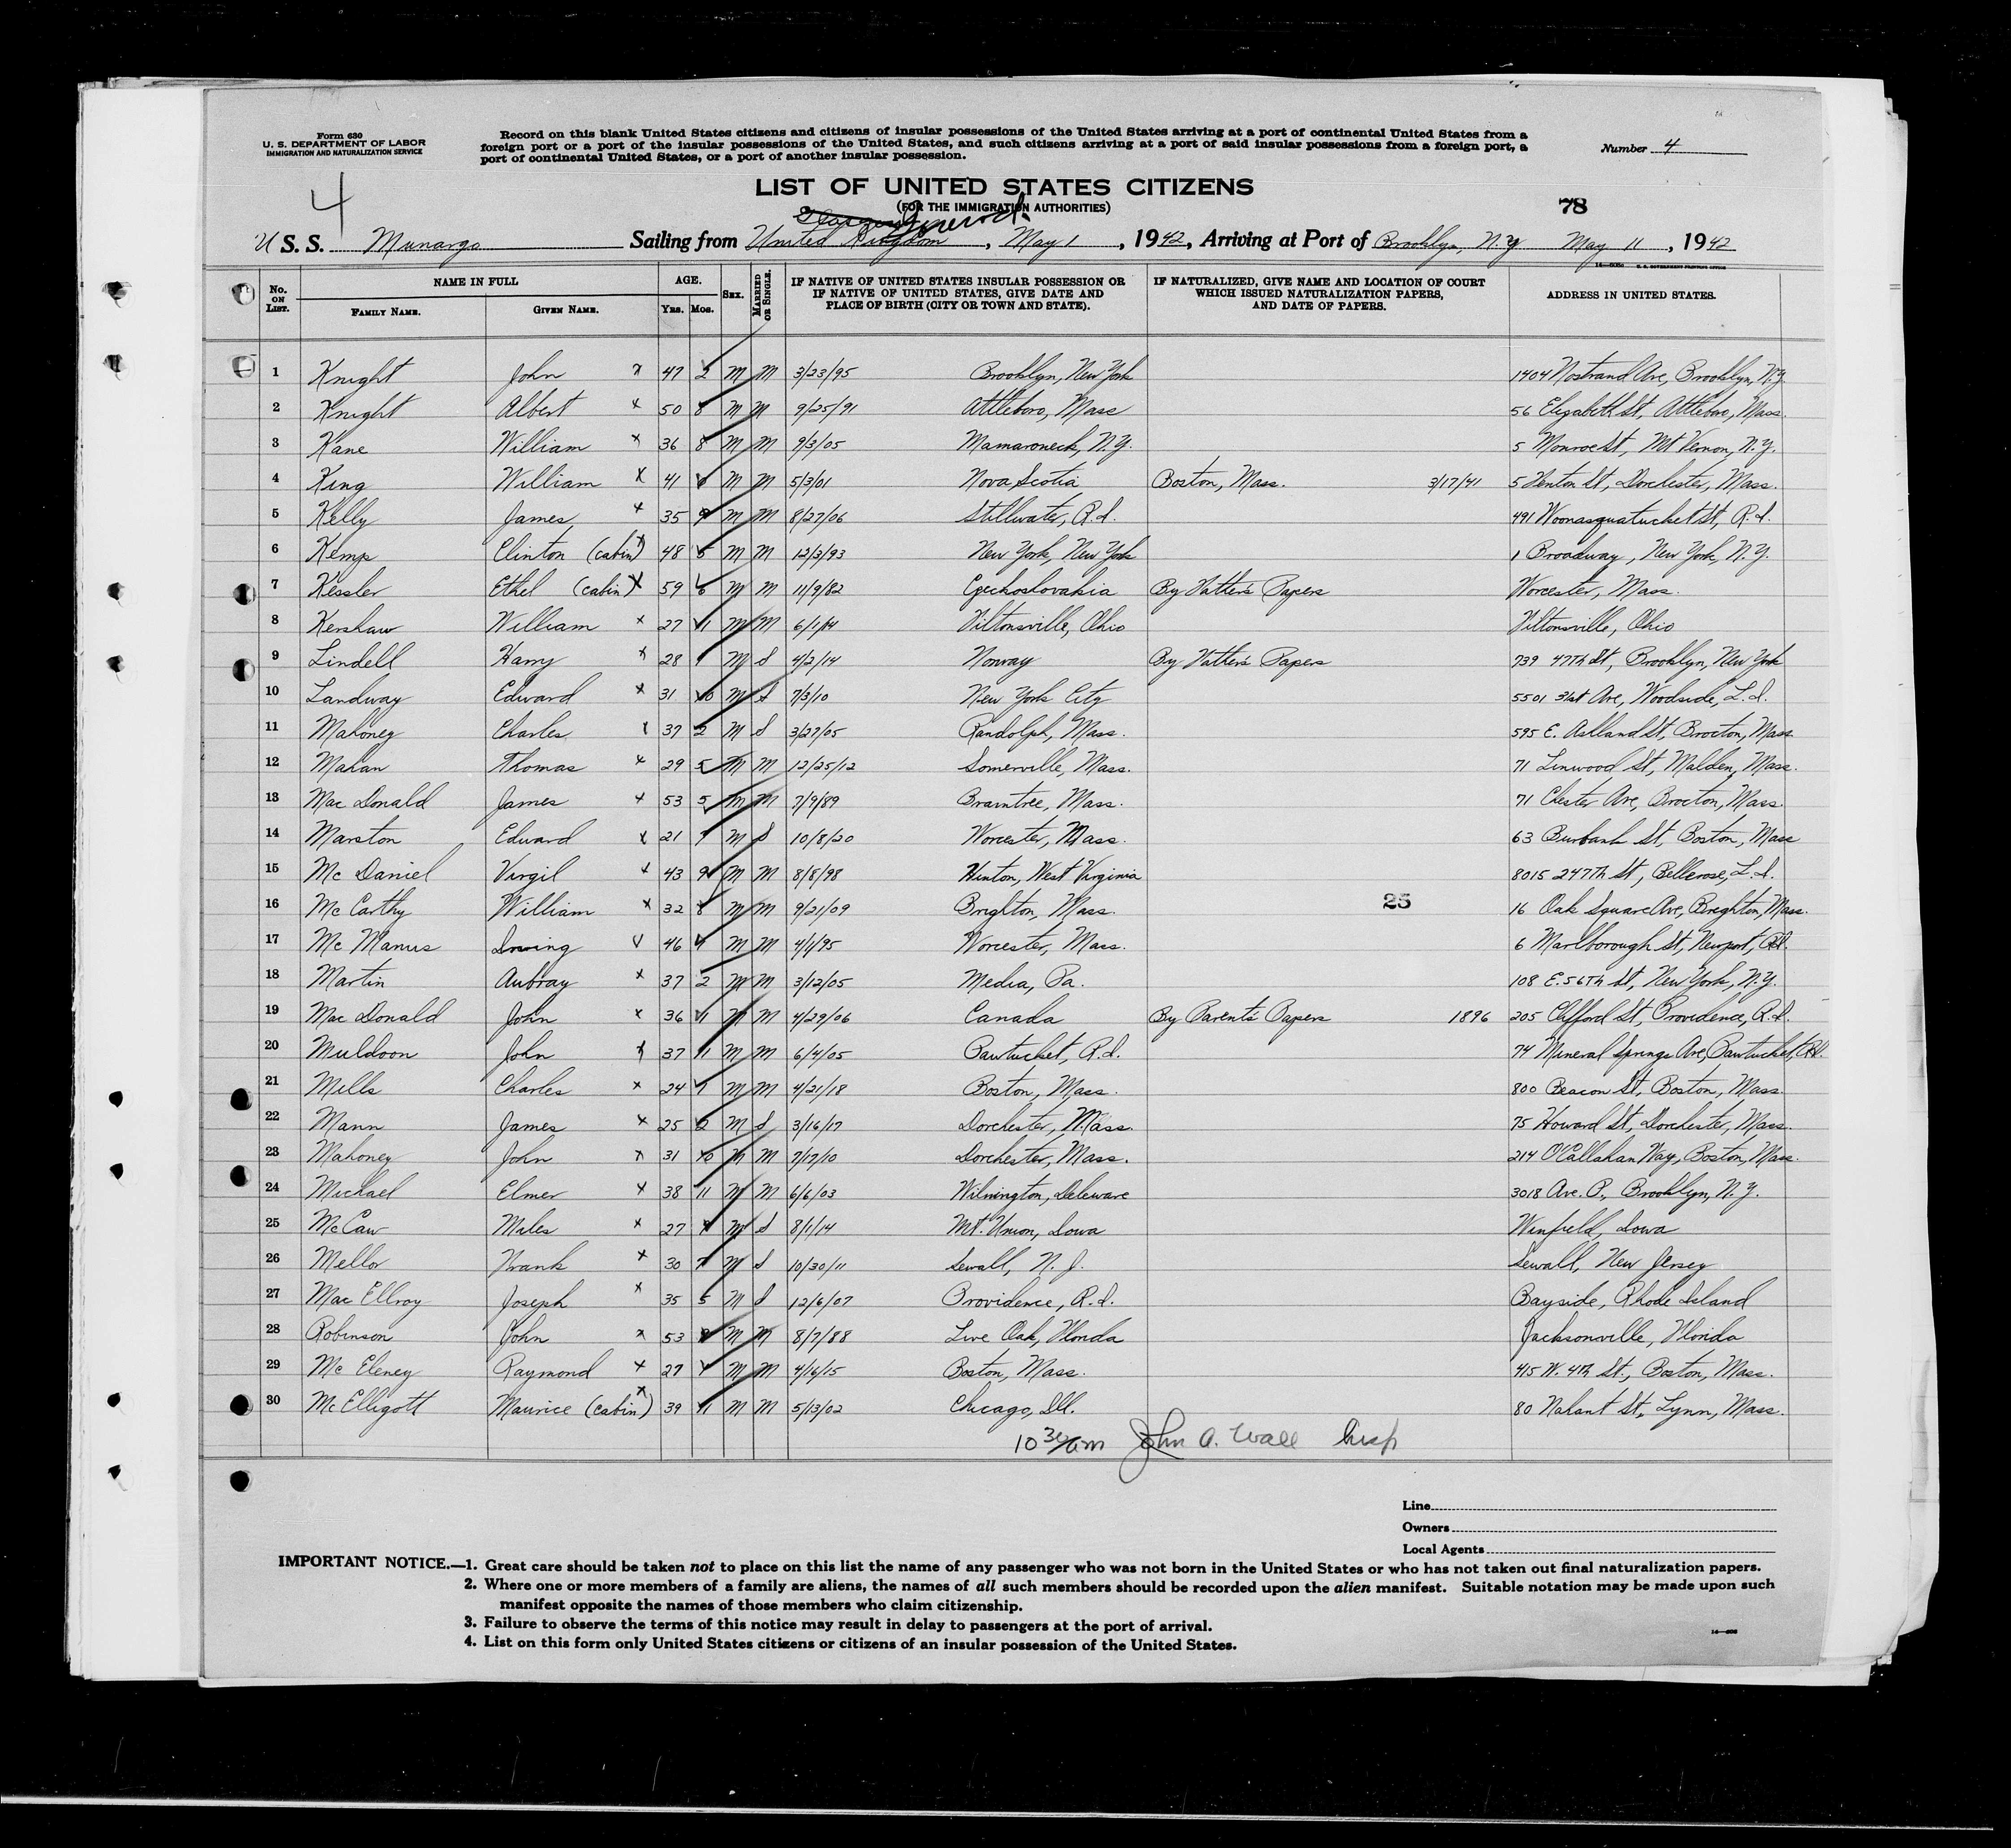 Form 630
U. S. DEPARTMENT OF LABOR
IMMIGRATION AND NATURALIZATION SERVICE
Record on this blank United States citizens and citizens of insular possessions of the United States arriving at a port of continental United States from a
foreign port or a port of the insular possessions of the United States, and such citizens arriving at a port of said insular possessions from a foreign port, a
port of continental United States, or a port of another insular possession.
Number 4
4
LIST OF UNITED STATES CITIZENS
(FOR THE IMMIGRATION AUTHORITIES)
78
U S. S. Munargo Sailing from United Kingdom, May 1, 1942, Arriving at Port of Brooklyn, N.Y. May 11, 1942
No. ON LIST. NAME IN FULL FAMILY NAME. GIVEN NAME. AGE. YRS. MOS. SEX. MARRIED OR SINGLE. IF NATIVE OF UNITED STATES INSULAR POSSESSION OR IF NATIVE OF UNITED STATES, GIVE DATE AND PLACE OF BIRTH (CITY OR TOWN AND STATE). IF NATURALIZED, GIVE NAME AND LOCATION OF COURT WHICH ISSUED NATURALIZATION PAPERS, AND DATE OF PAPERS. ADDRESS IN UNITED STATES.
1 Knight John x 47 2 M M 3/23/95 Brooklyn, New York 1404 Nostrand Ave, Brooklyn, N.Y.
2 Knight Albert x 50 8 M M 9/25/91 Attleboro, Mass 56 Elizabeth St, Attleboro, Mass.
3 Kane William x 36 8 M M 9/3/05 Mamaroneck, N.Y. 5 Monroe St, Mt Vernon, N.Y.
4 King William x 41 M M 5/3/01 Nova Scotia Boston, Mass. 3/17/41 5 Fenton St, Dorchester, Mass.
5 Kelly James x 35 9 M M 8/27/06 Stillwater, R.I. 491 Woonasquatucket St, R.I.
6 Kemp Clinton (cabin) x 48 5 M M 12/3/93 New York, New York 1 Broadway, New York, N.Y.
7 Kessler Ethel (cabin) x 59 6 M M 11/9/82 Czechoslovakia By Father's Papers Worcester, Mass.
8 Kershaw William x 27 11 M M 6/1/14 Tiltonsville, Ohio Tiltonsville, Ohio
9 Lindell Harry x 28 1 M S 4/2/14 Norway By Father's Papers 739 47th St, Brooklyn, New York
10 Landway Edward x 31 10 M S 7/3/10 New York City 5501 31st Ave, Woodside, L.I.
11 Mahoney Charles x 37 2 M S 3/27/05 Randolph, Mass. 595 E. Ashland St, Brocton, Mass
12 Mahan Thomas x 29 5 M M 12/25/12 Somerville, Mass. 71 Linwood St, Malden, Mass.
13 Mac Donald James x 53 5 M M 7/9/89 Braintree, Mass. 71 Chester Ave, Brocton, Mass.
14 Marston Edward x 21 7 M S 10/8/20 Worcester, Mass. 63 Burbank St, Boston, Mass
15 Mc Daniel Virgil x 43 9 M M 8/8/98 Hinton, West Virginia 8015 247th St, Bellerose, L.I.
16 Mc Carthy William x 32 8 M M 9/21/09 Brighton, Mass. 25 16 Oak Square Ave, Brighton, Mass.
17 Mc Manus Irving 46 M M 4/1/95 Worcester, Mass. 6 Marlborough St, Newport, R.I.
18 Martin Aubray x 37 2 M M 3/12/05 Media, Pa. 108 E. 56th St, New York, N.Y.
19 Mac Donald John x 36 11 M M 4/29/06 Canada By Parent's Papers 1896 205 Clifford St, Providence, R.I.
20 Muldoon John x 37 11 M M 6/4/05 Pawtucket, R.I. 74 Mineral Springs Ave, Pawtucket, R.I.
21 Mills Charles x 24 M M 4/21/18 Boston, Mass. 800 Beacon St, Boston, Mass.
22 Mann James x 25 2 M S 3/16/17 Dorchester, Mass. 75 Howard St, Dorchester, Mass.
23 Mahoney John x 31 10 M M 7/17/10 Dorchester, Mass. 214 O'Callahan Way, Boston, Mass.
24 Michael Elmer x 38 11 M M 6/6/03 Wilmington, Deleware 3018 Ave. P., Brooklyn, N.Y.
25 McCaw Miles x 27 M S 8/1/14 Mt. Union, Iowa Winfield, Iowa
26 Mellor Frank x 30 7 M S 10/30/11 Sewall, N.J. Sewall, New Jersey
27 Mac Ellroy Joseph x 35 5 M S 12/6/07 Providence, R.I. Bayside, Rhode Island
28 Robinson John x 53 M M 8/7/88 Live Oak, Florida Jacksonville, Florida
29 Mc Eleney Raymond x 27 1 M M 4/16/15 Boston, Mass. 415 W. 4th St., Boston, Mass.
30 Mc Elligott Maurice (cabin) x 39 11 M M 5/13/02 Chicago, Ill. 80 Nahant St, Lynn, Mass.
10 30/am John A. Wall Insp
Line
Owners
Local Agents
IMPORTANT NOTICE.—1. Great care should be taken not to place on this list the name of any passenger who was not born in the United States or who has not taken out final naturalization papers.
2. Where one or more members of a family are aliens, the names of all such members should be recorded upon the alien manifest. Suitable notation may be made upon such
manifest opposite the names of those members who claim citizenship.
3. Failure to observe the terms of this notice may result in delay to passengers at the port of arrival.
4. List on this form only United States citizens or citizens of an insular possession of the United States.